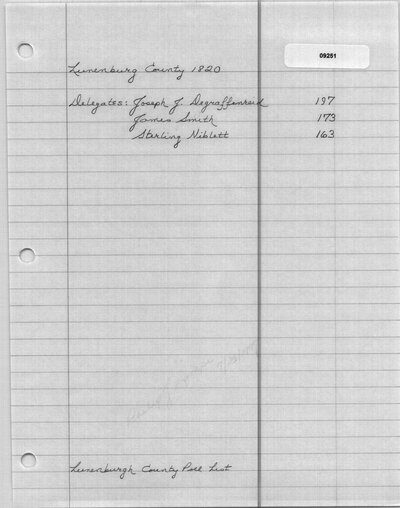 09251
Lunenburg County 1820
Delegates: Joseph J. Degraffenreid 197
James Smith 173
Sterling Niblett 163
Lunenburgh County Poll List